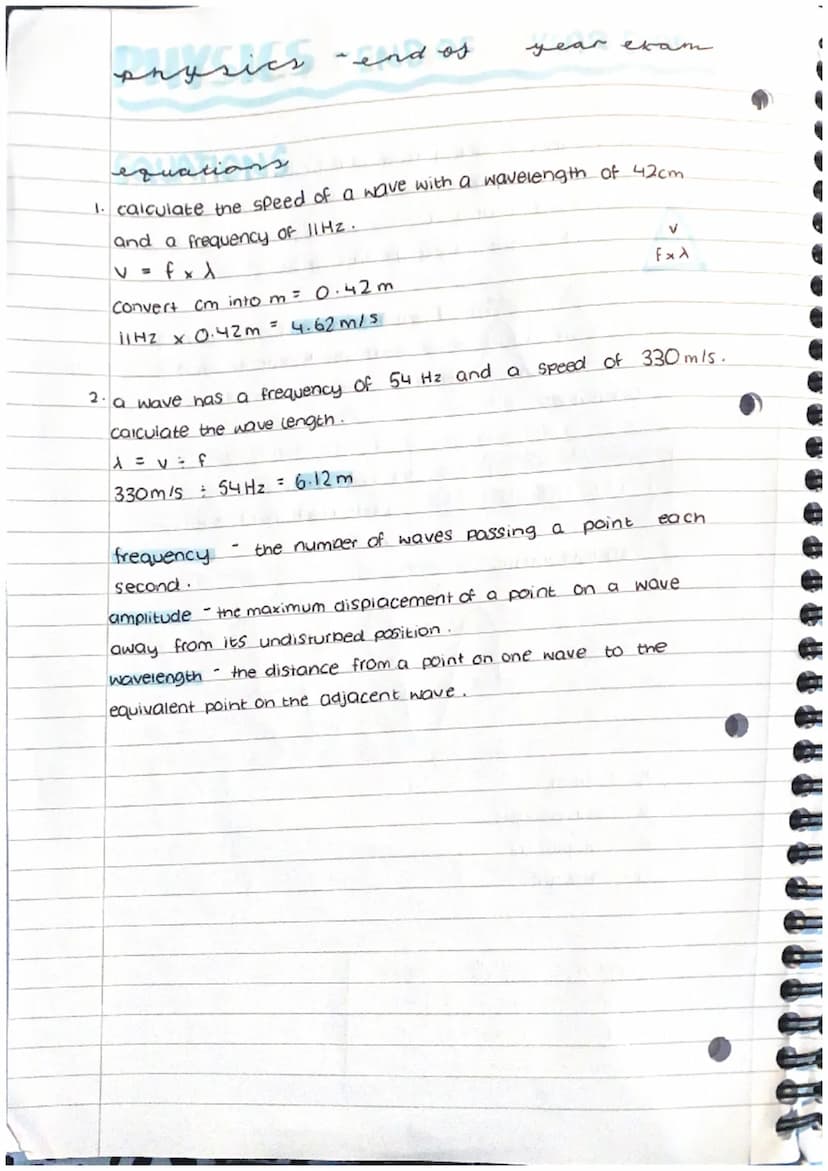 physics - end of year exam
equations
1. calculate the speed of a wave with a wavelength of 42cm
and a frequency of 11Hz.
v = f x λ
convert cm into m = 0.42m
11Hz x 0.42m = 4.62m/s
v
f x λ
2. a wave has a frequency of 54 Hz and a speed of 330m/s.
calculate the wave length.
λ = v ÷ f
330m/s ÷ 54Hz = 6.12m
frequency - the number of waves passing a point each
second.
amplitude - the maximum displacement of a point on a wave
away from its undisturbed position.
wavelength - the distance from a point on one wave to the
equivalent point on the adjacent wave.